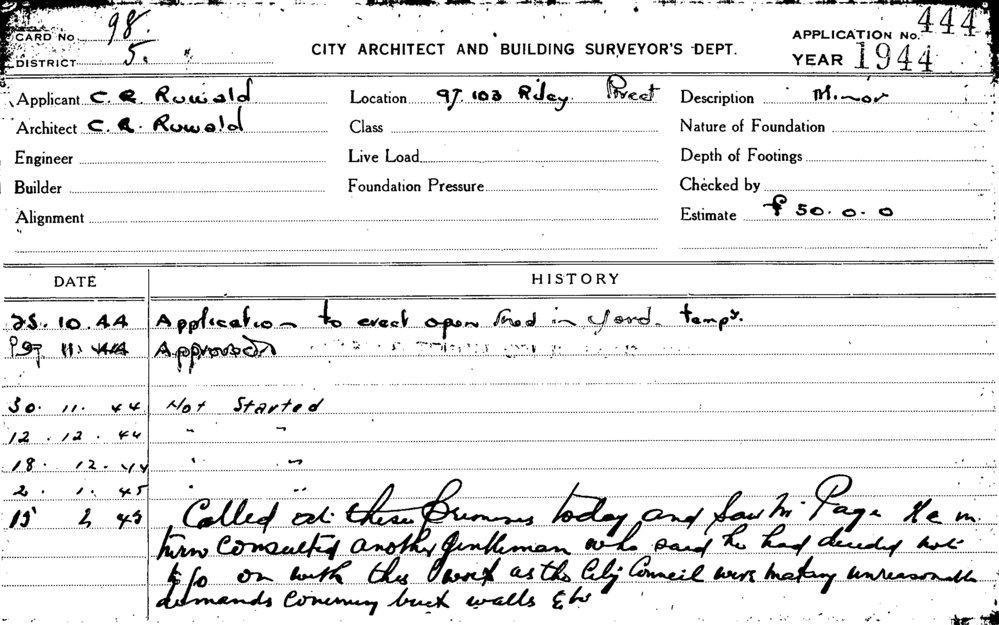 CARD No. 98.
DISTRICT 5.
CITY ARCHITECT AND BUILDING SURVEYOR'S DEPT.
APPLICATION No. 444
YEAR 1944
Applicant C. R. Ruwald Location 97.103 Riley Street Description Minor
Architect C. R. Ruwald Class Nature of Foundation
Engineer Live Load Depth of Footings
Builder Foundation Pressure Checked by
Alignment Estimate £ 50. 0. 0
DATE HISTORY
25. 10. 44 Application to erect open shed in yard. tempy.
11. 44 Approved
30. 11. 44 Not Started
12. 12. 44 " "
18. 12. 44 " "
2. 1. 45 " "
15 2 45 Called at these Premises today and saw Mr Page He in
turn consulted another gentleman who said he had decided not
to go on with this work as the City Council were making unreasonable
demands concerning brick walls Etc